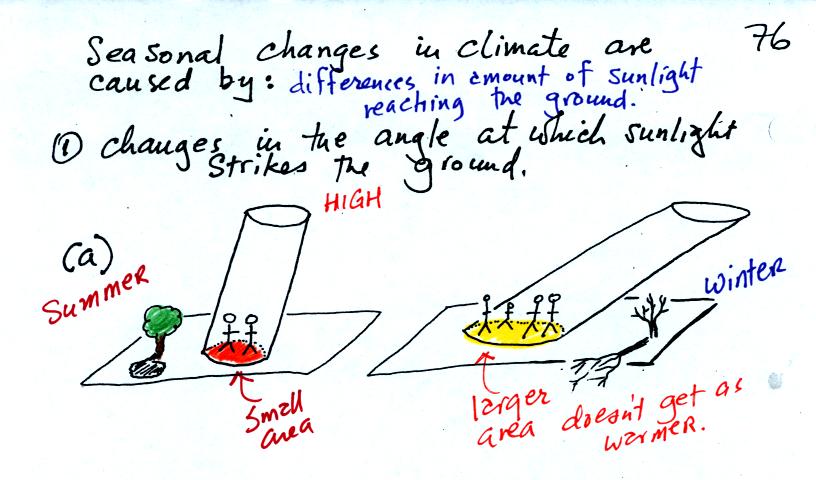 76
Seasonal changes in climate are
caused by: differences in amount of sunlight
reaching the ground.
① changes in the angle at which sunlight
strikes the ground.
HIGH
(a)
Summer
winter
small
area
larger
area
doesn't get as
warmer.